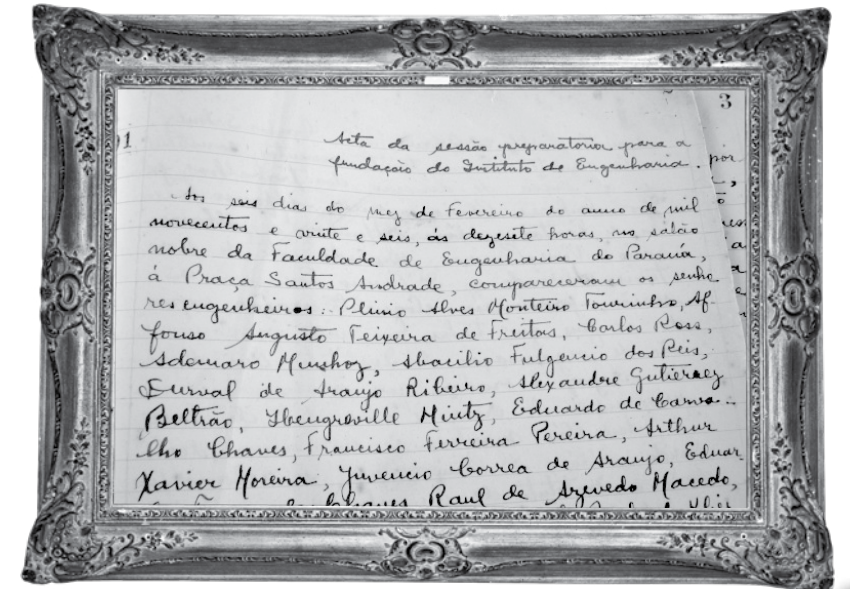 3
Acta da sessão preparatoria para a
fundação do Instituto de Engenharia.
Aos seis dias do mez de Fevereiro do anno de mil
novecentos e vinte e seis, ás dezesete horas, no salão
nobre da Faculdade de Engenharia do Paraná,
á Praça Santos Andrade, compareceram os senho
res engenheiros: Plinio Alves Monteiro Tourinho, Af-
fonso Augusto Teixeira de Freitas, Carlos Ross,
Ademaro Munhoz, Fulgencio dos Reis,
Durval de Araujo Ribeiro, Alexandre Gutierrez
Beltrão, Eduardo de Carva-
lho Chaves, Francisco Ferreira Pereira, Arthur
Xavier Moreira, Juvencio Correa de Araujo, Eduar
Raul de Azevedo Macedo,